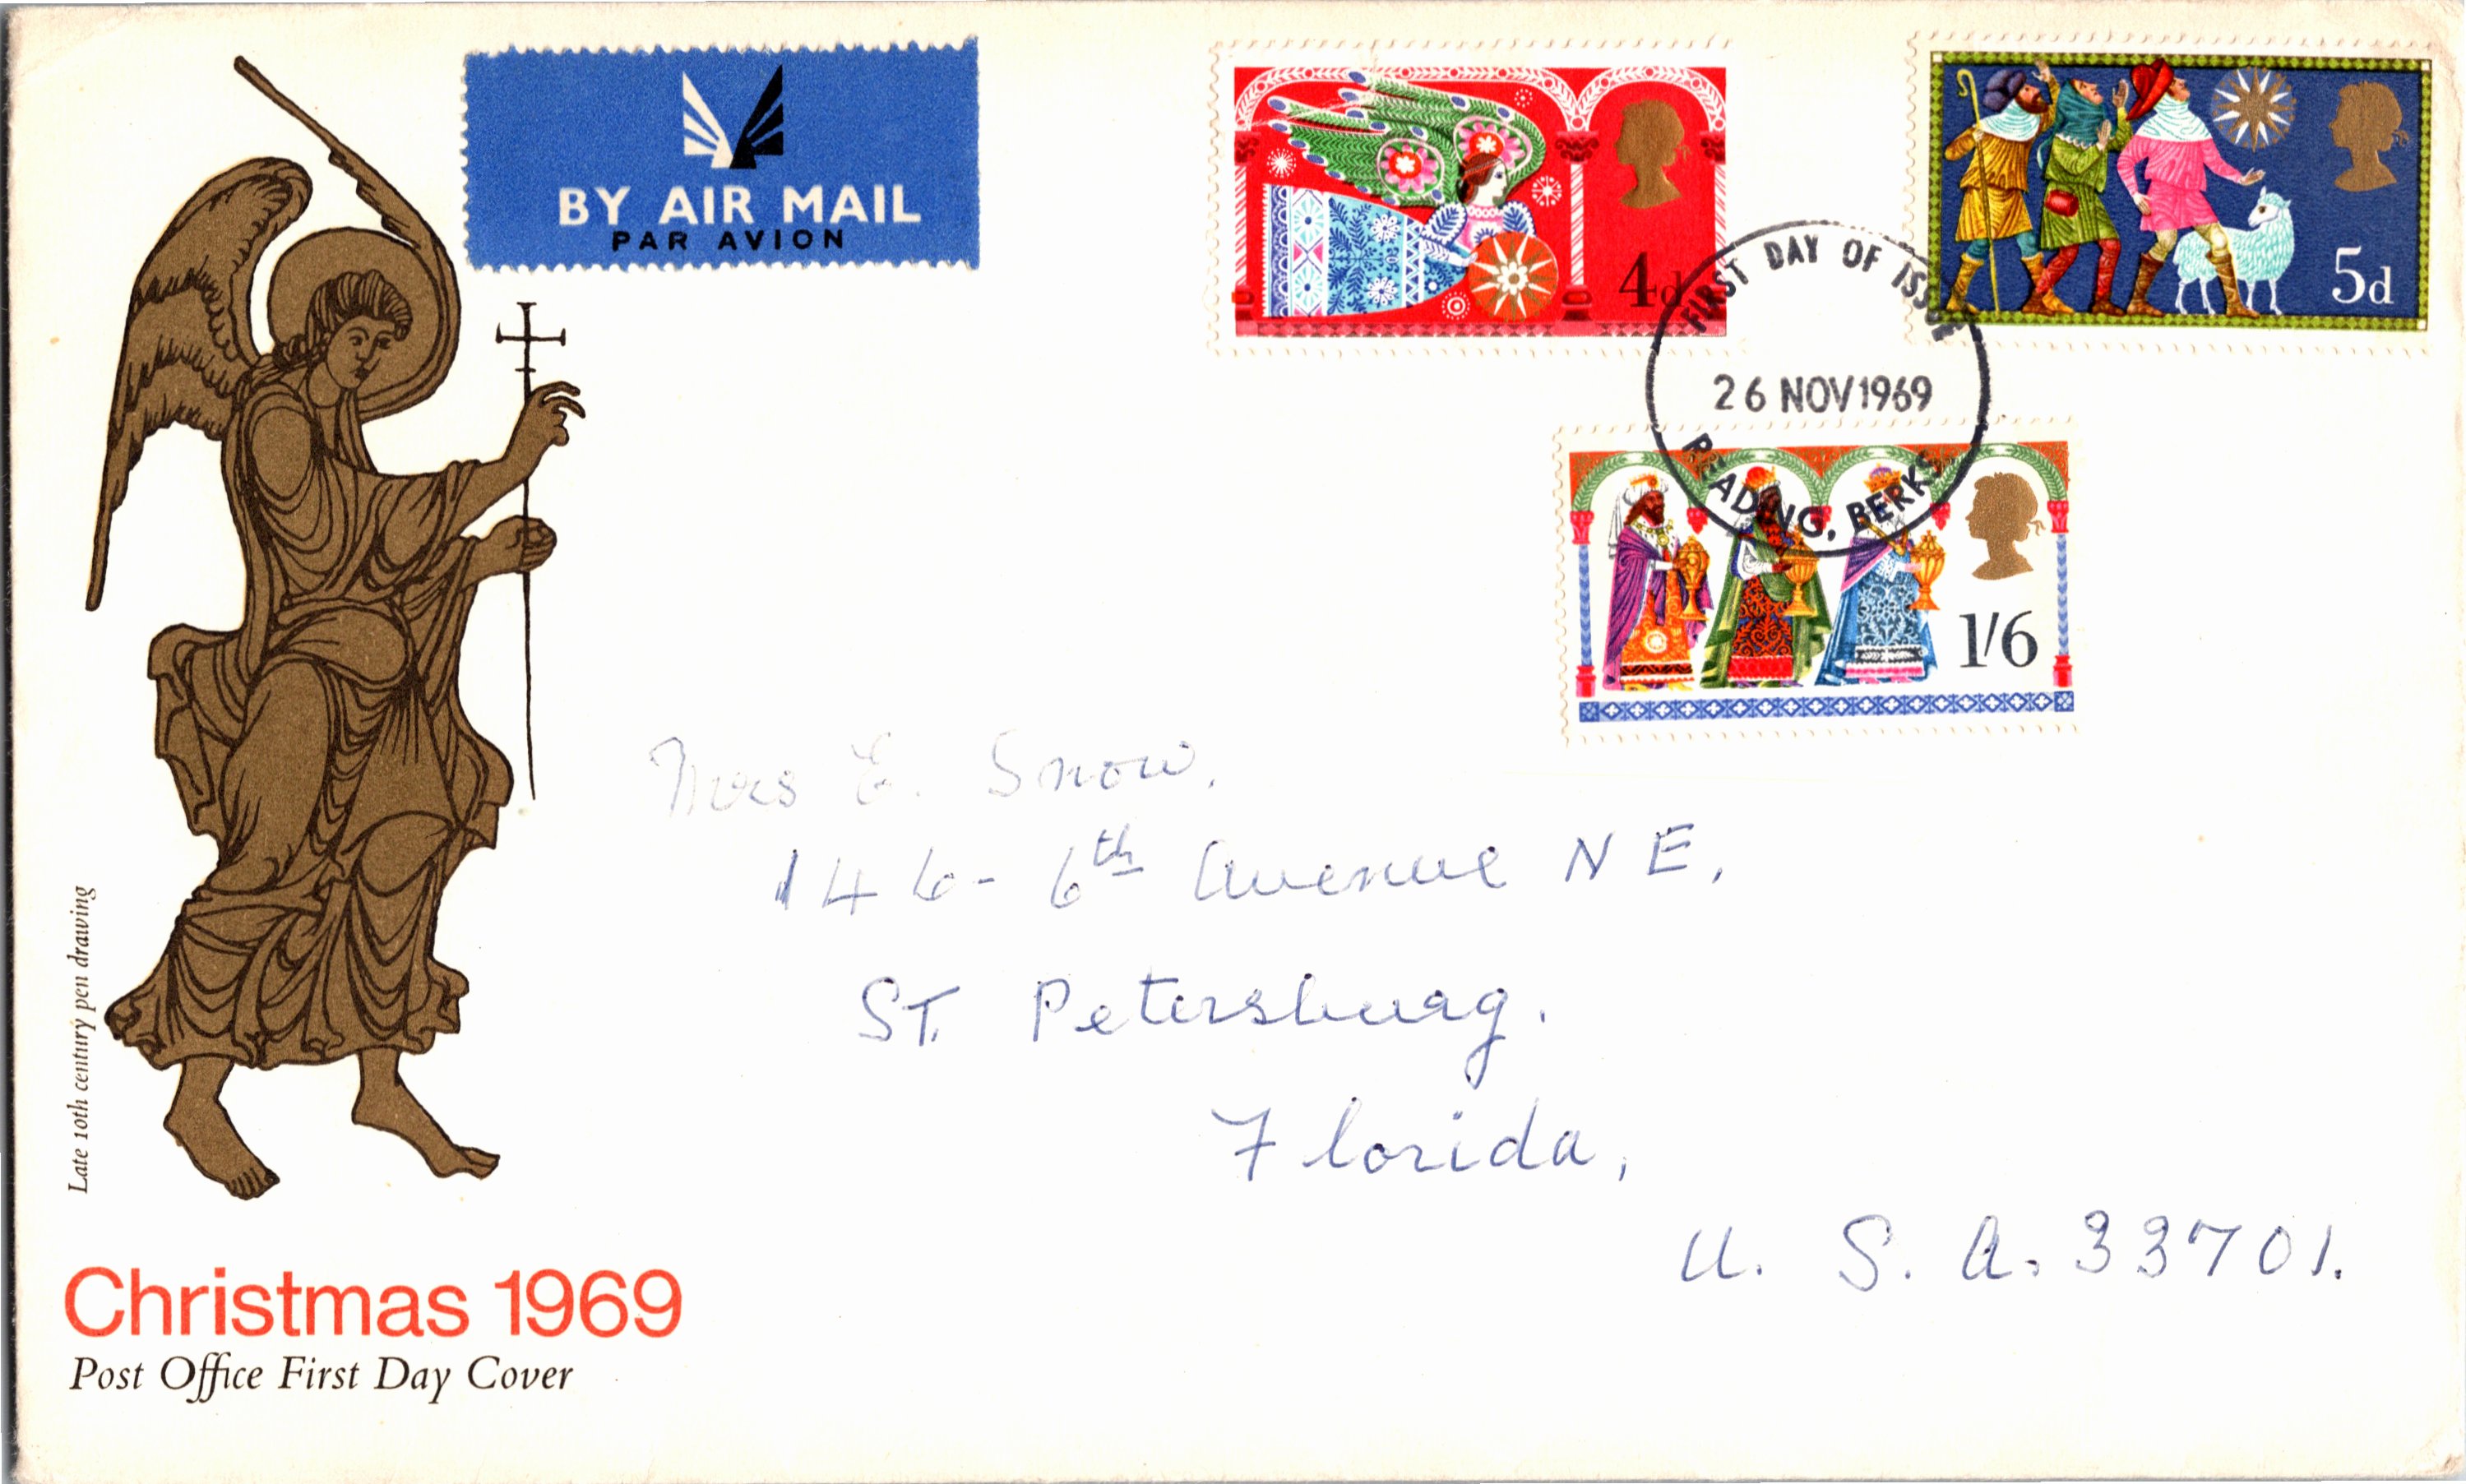 BY AIR MAIL
PAR AVION
4d
5d
FIRST DAY OF ISSUE
26 NOV 1969
READING, BERKS
1/6
Mrs E. Snow,
146-6th Avenue N E,
ST. Petersburg.
Florida,
U. S. A. 33701.
Late 10th century pen drawing
Christmas 1969
Post Office First Day Cover